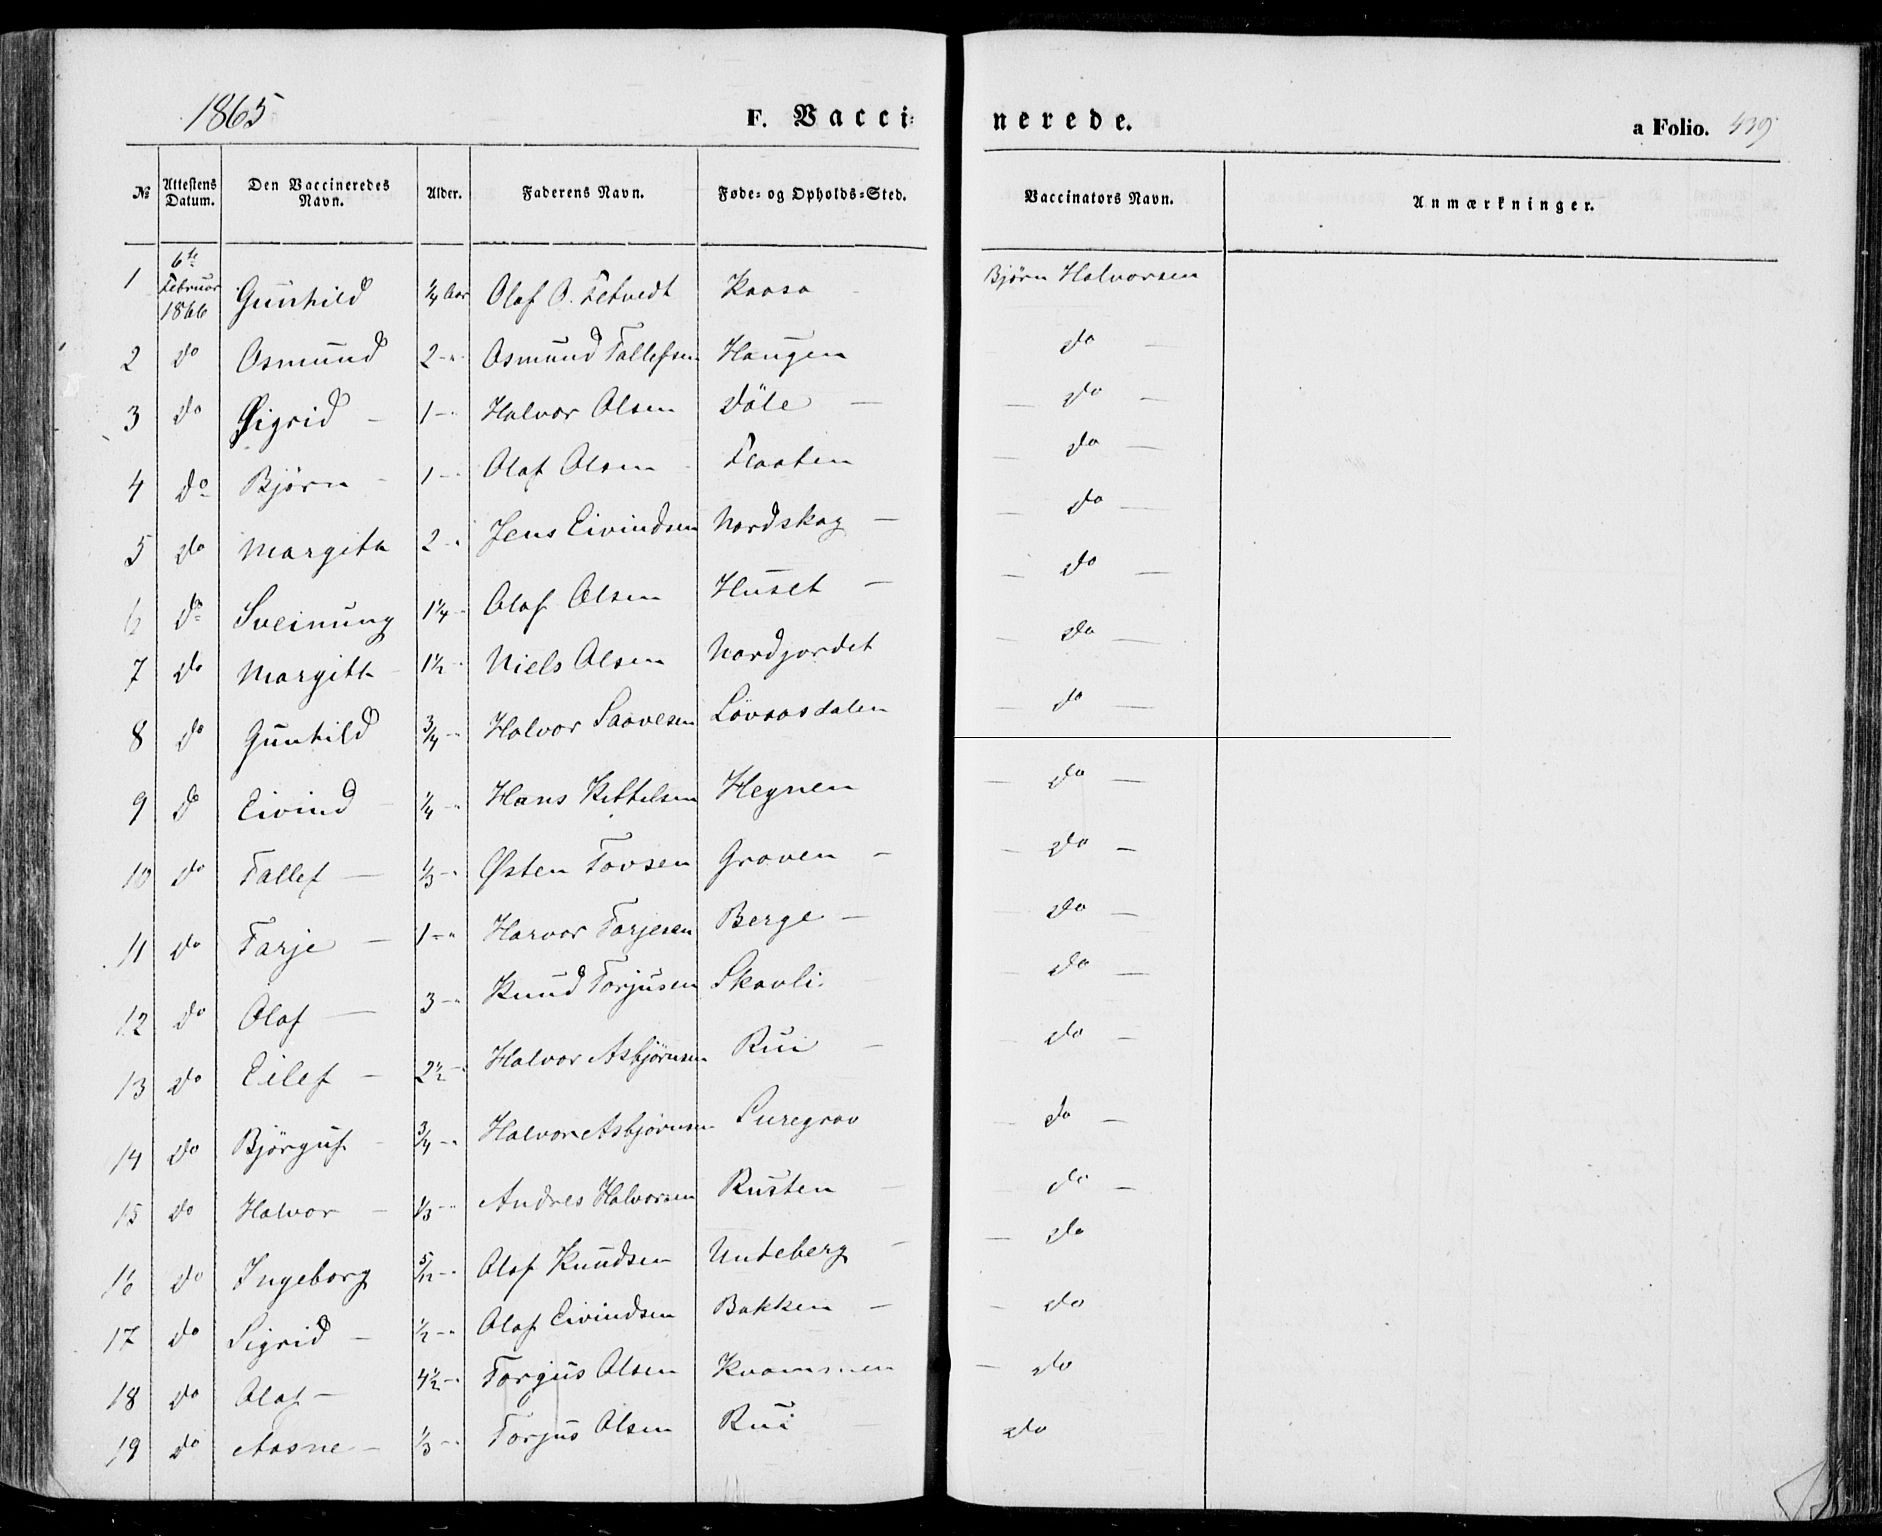 1865
F. Vaccinerede.
a Folio. 439
№ Attestens Datum. Den Vaccineredes Navn. Alder. Faderens Navn. Føde- og Opholds-Sted. Vaccinators Navn. Anmærkninger.
1 6te Februar 1866 Gunhild ¼ Aar Olaf O. Fetvedt Kaasa Bjørn Halvorsen
2 do Osmund 2 -"- Osmund Tallefsen Haugen do
3 do Sigrid - 1 -"- Halvor Olsen Döle - - do -
4 do Bjørn - 1 -"- Olaf Olsen - Flaaten - do -
5 do Margith 2 -"- Jens Eivindsen Nordskog - - do -
6 do Sveinung 1¼ -"- Olaf Olsen Huset - - do -
7 do Margith 1½ -"- Niels Olsen Nordjordet - do -
8 do Gunhild ¾ -"- Halvor Saavesen Lövaasdalen - do -
9 do Eivind - ¼ -"- Hans Kittelsen Hegnen - do -
10 do Tallef - ⅓ -"- Østen Tovsen Graven - - do -
11 do Tarje - 1 -"- Harvor Tarjesen Berge - - do -
12 do Olaf - 3 -"- Knud Torjusen Skavli - do -
13 do Eilef - 2½ -"- Halvor Asbjørnsen Rui - - do -
14 do Björguf - ¾ -"- Halvor Asbjørnsen Suregrav - do -
15 do Halvor - ⅓ -"- Andres Halvorsen Rusten - - do -
16 do Ingeborg 5/12 -"- Olaf Knudsen Unteberg - - do
17 do Sigrid - ½ -"- Olaf Eivindsen Bakken - - do
18 do Olaf - 4½ -"- Torgus Olsen Kvammen - do
19 do Aasne - ⅓ -"- Torjus Olsen Rui - do